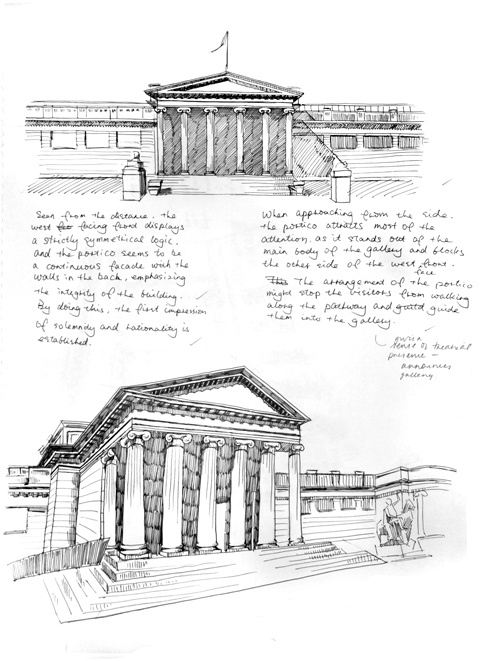 Seen from the distance. the
west facing frond displays
a strictly symmetrical logic.
and the portico seems to be
a continuous facade with the
walls in the back, emphasizing
the integrity of the building.
By doing this, the first impression
of solemnity and rationality is
established.
When approaching from the side.
the portico attracts most of the
attention, as it stands out of the
main body of the gallery and blocks
the other side of the west front.
face
This The arrangement of the portico
might stop the visitors from walking
along the pathway and guide
them into the gallery.
sense of
presence -
announces
gallery